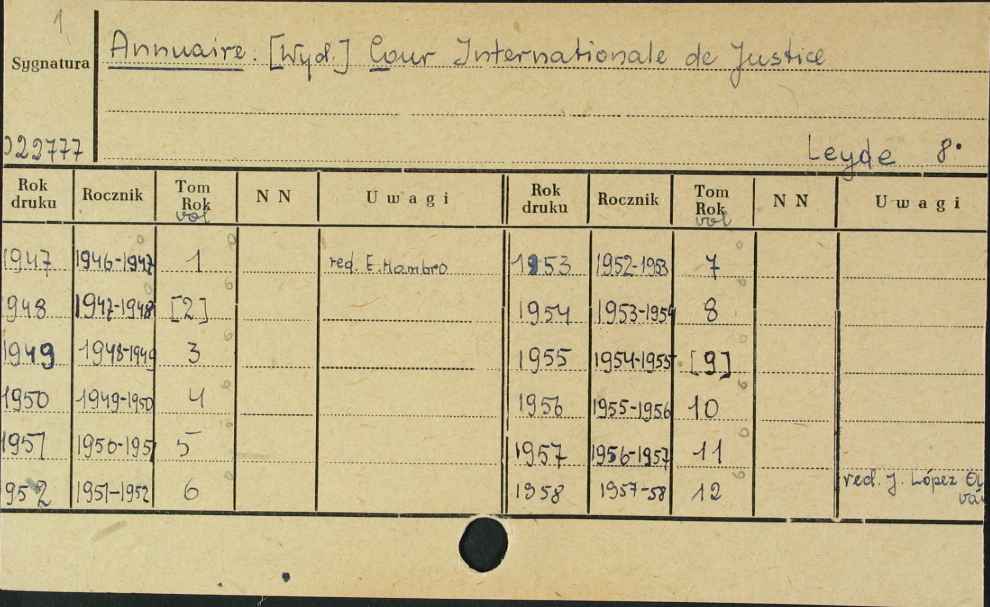 1
Sygnatura
Annuaire. [Wyd.] Cour Internationale de Justice
022777
Leyde 8°
Rok druku Rocznik Tom Rok vol N N Uwagi Rok druku Rocznik Tom Rok vol N N Uwagi
1947 1946-1947 1 red. E. Hambro 1953 1952-1953 7
1948 1947-1948 [2] 1954 1953-1954 8
1949 1948-1949 3 1955 1954-1955 [9]
1950 1949-1950 4 1956 1955-1956 10
1951 1950-1951 5 1957 1956-1957 11
1952 1951-1952 6 1958 1957-58 12 red. J. López